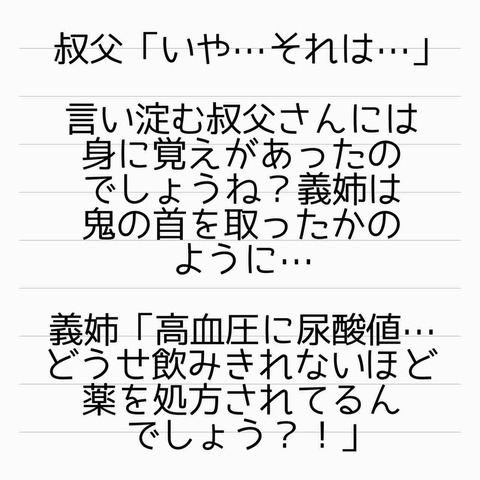 叔父「いや…それは…」
言い淀む叔父さんには
身に覚えがあったの
でしょうね？義姉は
鬼の首を取ったかの
ように…
義姉「高血圧に尿酸値…
どうせ飲みきれないほど
薬を処方されてるん
でしょう？！」